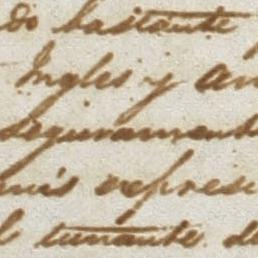 do bastante
Ingles y Am
seguramente
mis expresi
l tunante de